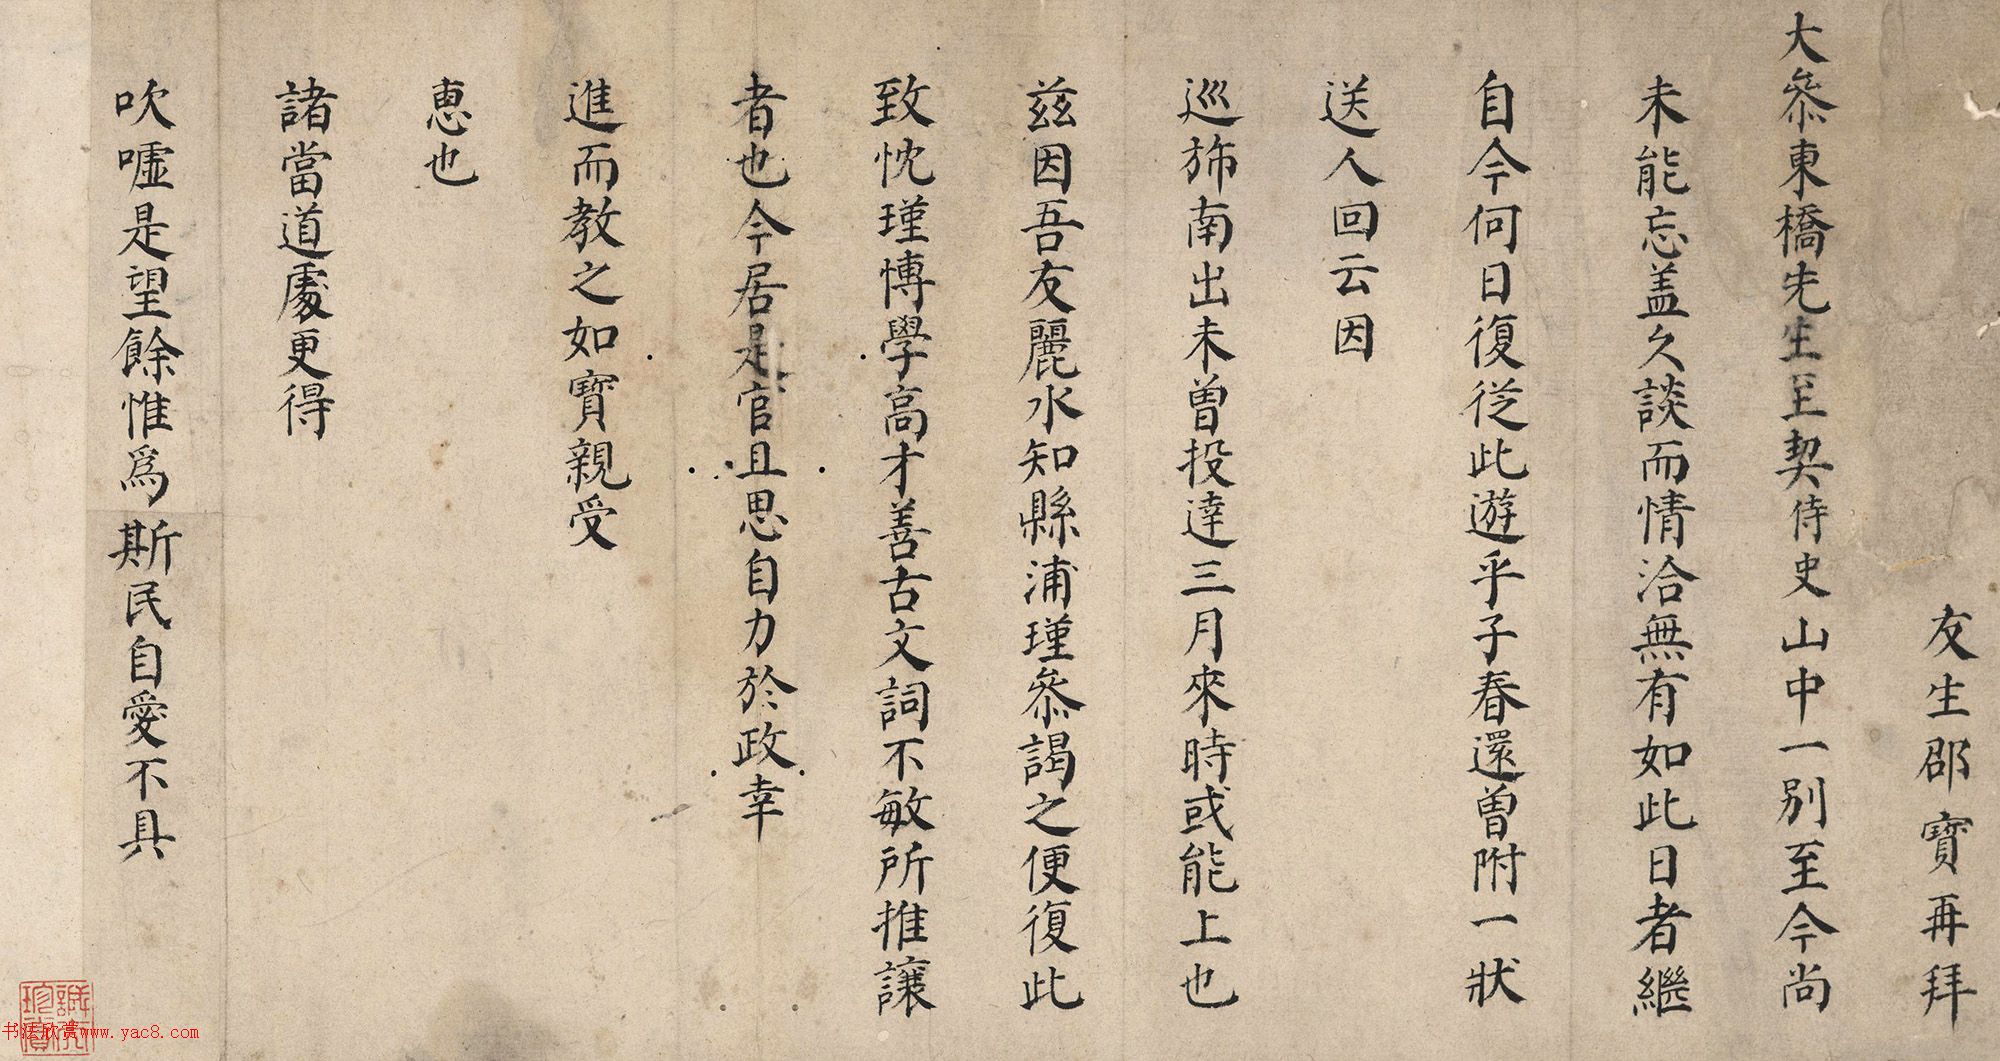 友生邵寶再拜
大叅東橋先生至契侍史山中一別至今尚
未能忘盖久談而情洽無有如此日者繼
自今何日復從此遊乎子春還曾附一狀
送人回云因
巡斾南出未曾投達三月來時或能上也
茲因吾友麗水知縣浦瑾叅謁之便復此
致忱瑾博學高才善古文詞不敏所推讓
者也今居是官且思自力於政幸
進而教之如寶親受
恵也
諸當道處更得
吹噓是望餘惟爲斯民自愛不具
书法欣赏www.yac8.com